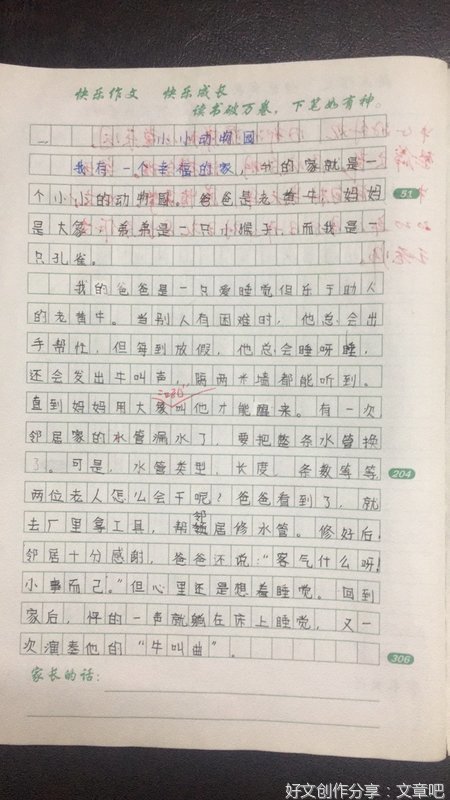 快乐作文 快乐成长
读书破万卷，下笔如有神。
小小动物园
我有一个幸福的家，我的家就是一
个小小的动物园。爸爸是老黄牛，妈妈
51
是大象，弟弟是一只小猴子，而我是一
只孔雀。
我的爸爸是一只爱睡觉但乐于助人
的老黄牛。当别人有困难时，他总会出
手帮忙，但每到放假，他总会睡呀睡，
还会发出牛叫声，隔两米墙都能听到。
直到妈妈用大象叫他才能醒来。有一次
邻居家的水管漏水了，要把整条水管换
了。可是，水管类型，长度，条数等等
204
两位老人怎么会干呢？爸爸看到了，就
去厂里拿工具，帮邻居修水管。修好后，
邻居十分感谢，爸爸还说：“客气什么呀！
小事而己。”但心里还是想着睡觉。回到
家后，怦的一声就躺在床上睡觉，又一
次演奏他的“牛叫曲”。
306
家长的话：
好文创作分享：文章吧